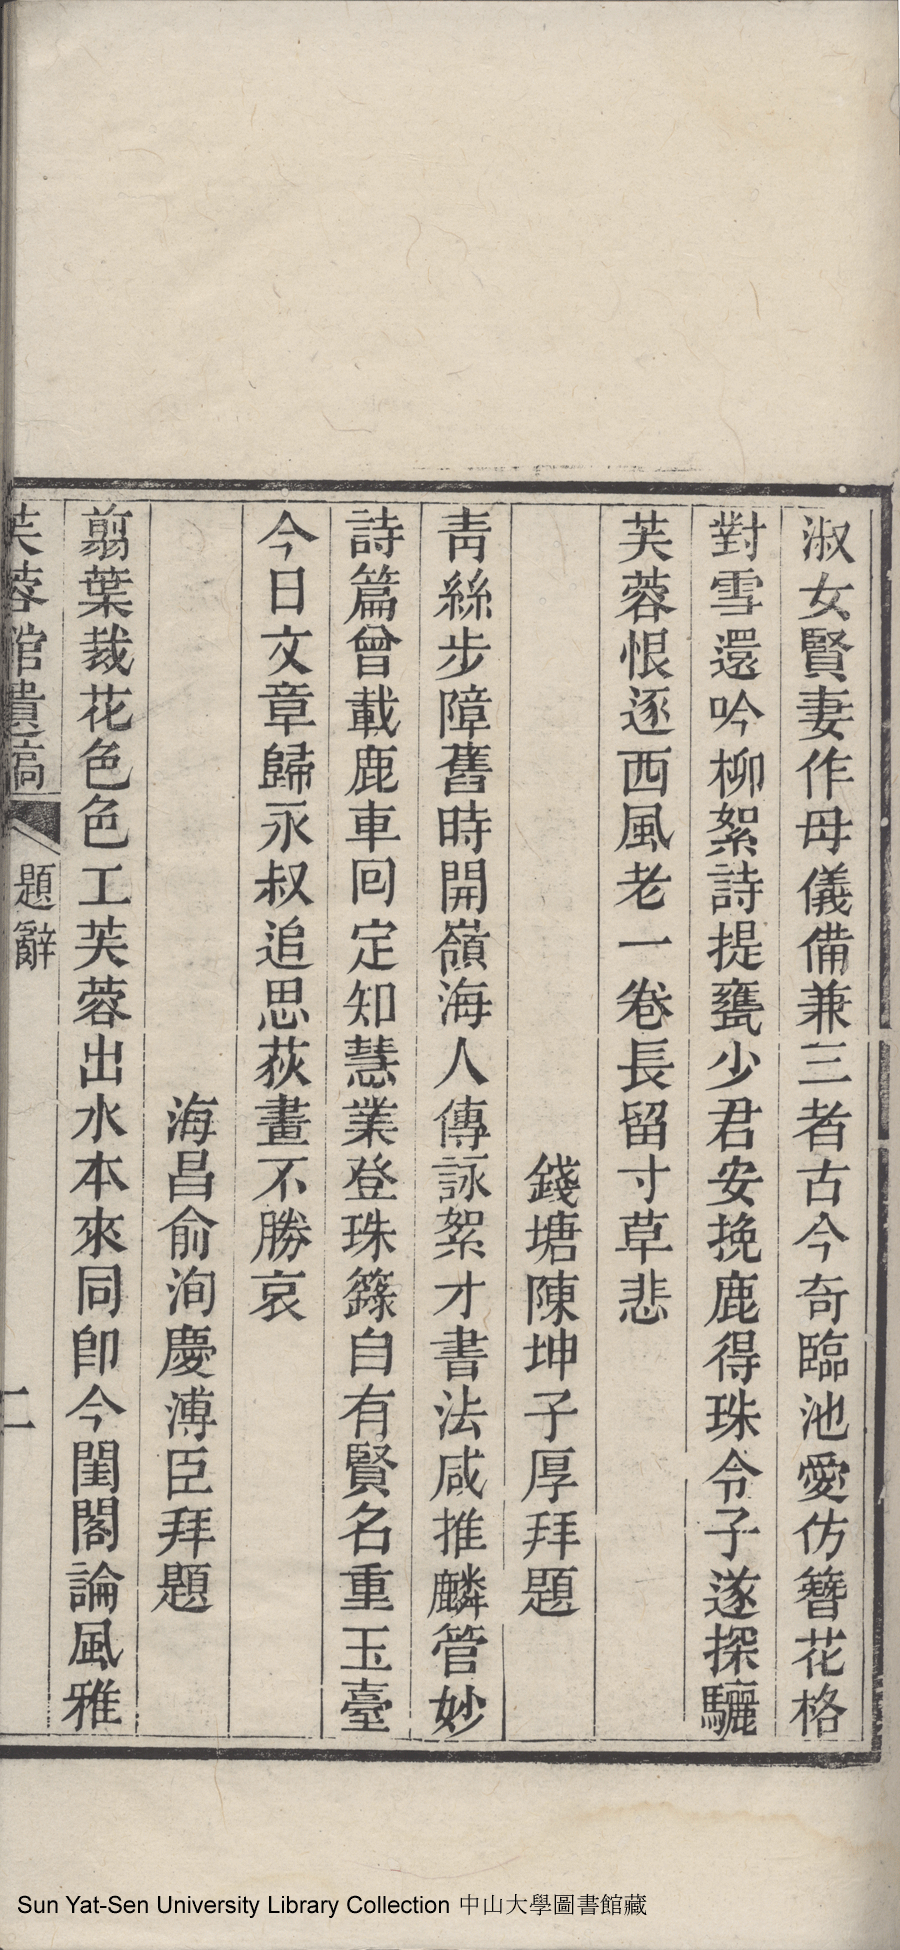 淑女賢妻作母儀備兼三者古今奇臨池愛仿簪花格
對雪還吟柳絮詩提甕少君安挽鹿得珠令子遂探驪
芙蓉恨逐西風老一卷長留寸草悲
錢塘陳坤子厚拜題
靑絲步障舊時開嶺海人傳詠絮才書法咸推麟管妙
詩篇曾載鹿車回定知慧業登珠籙自有賢名重玉臺
今日文章歸永叔追思荻畫不勝哀
海昌俞洵慶溥臣拜題
翦葉裁花色色工芙蓉出水本來同卽今閨閣論風雅
芙蓉館遺稿 題辭 二
Sun Yat-Sen University Library Collection 中山大學圖書館藏